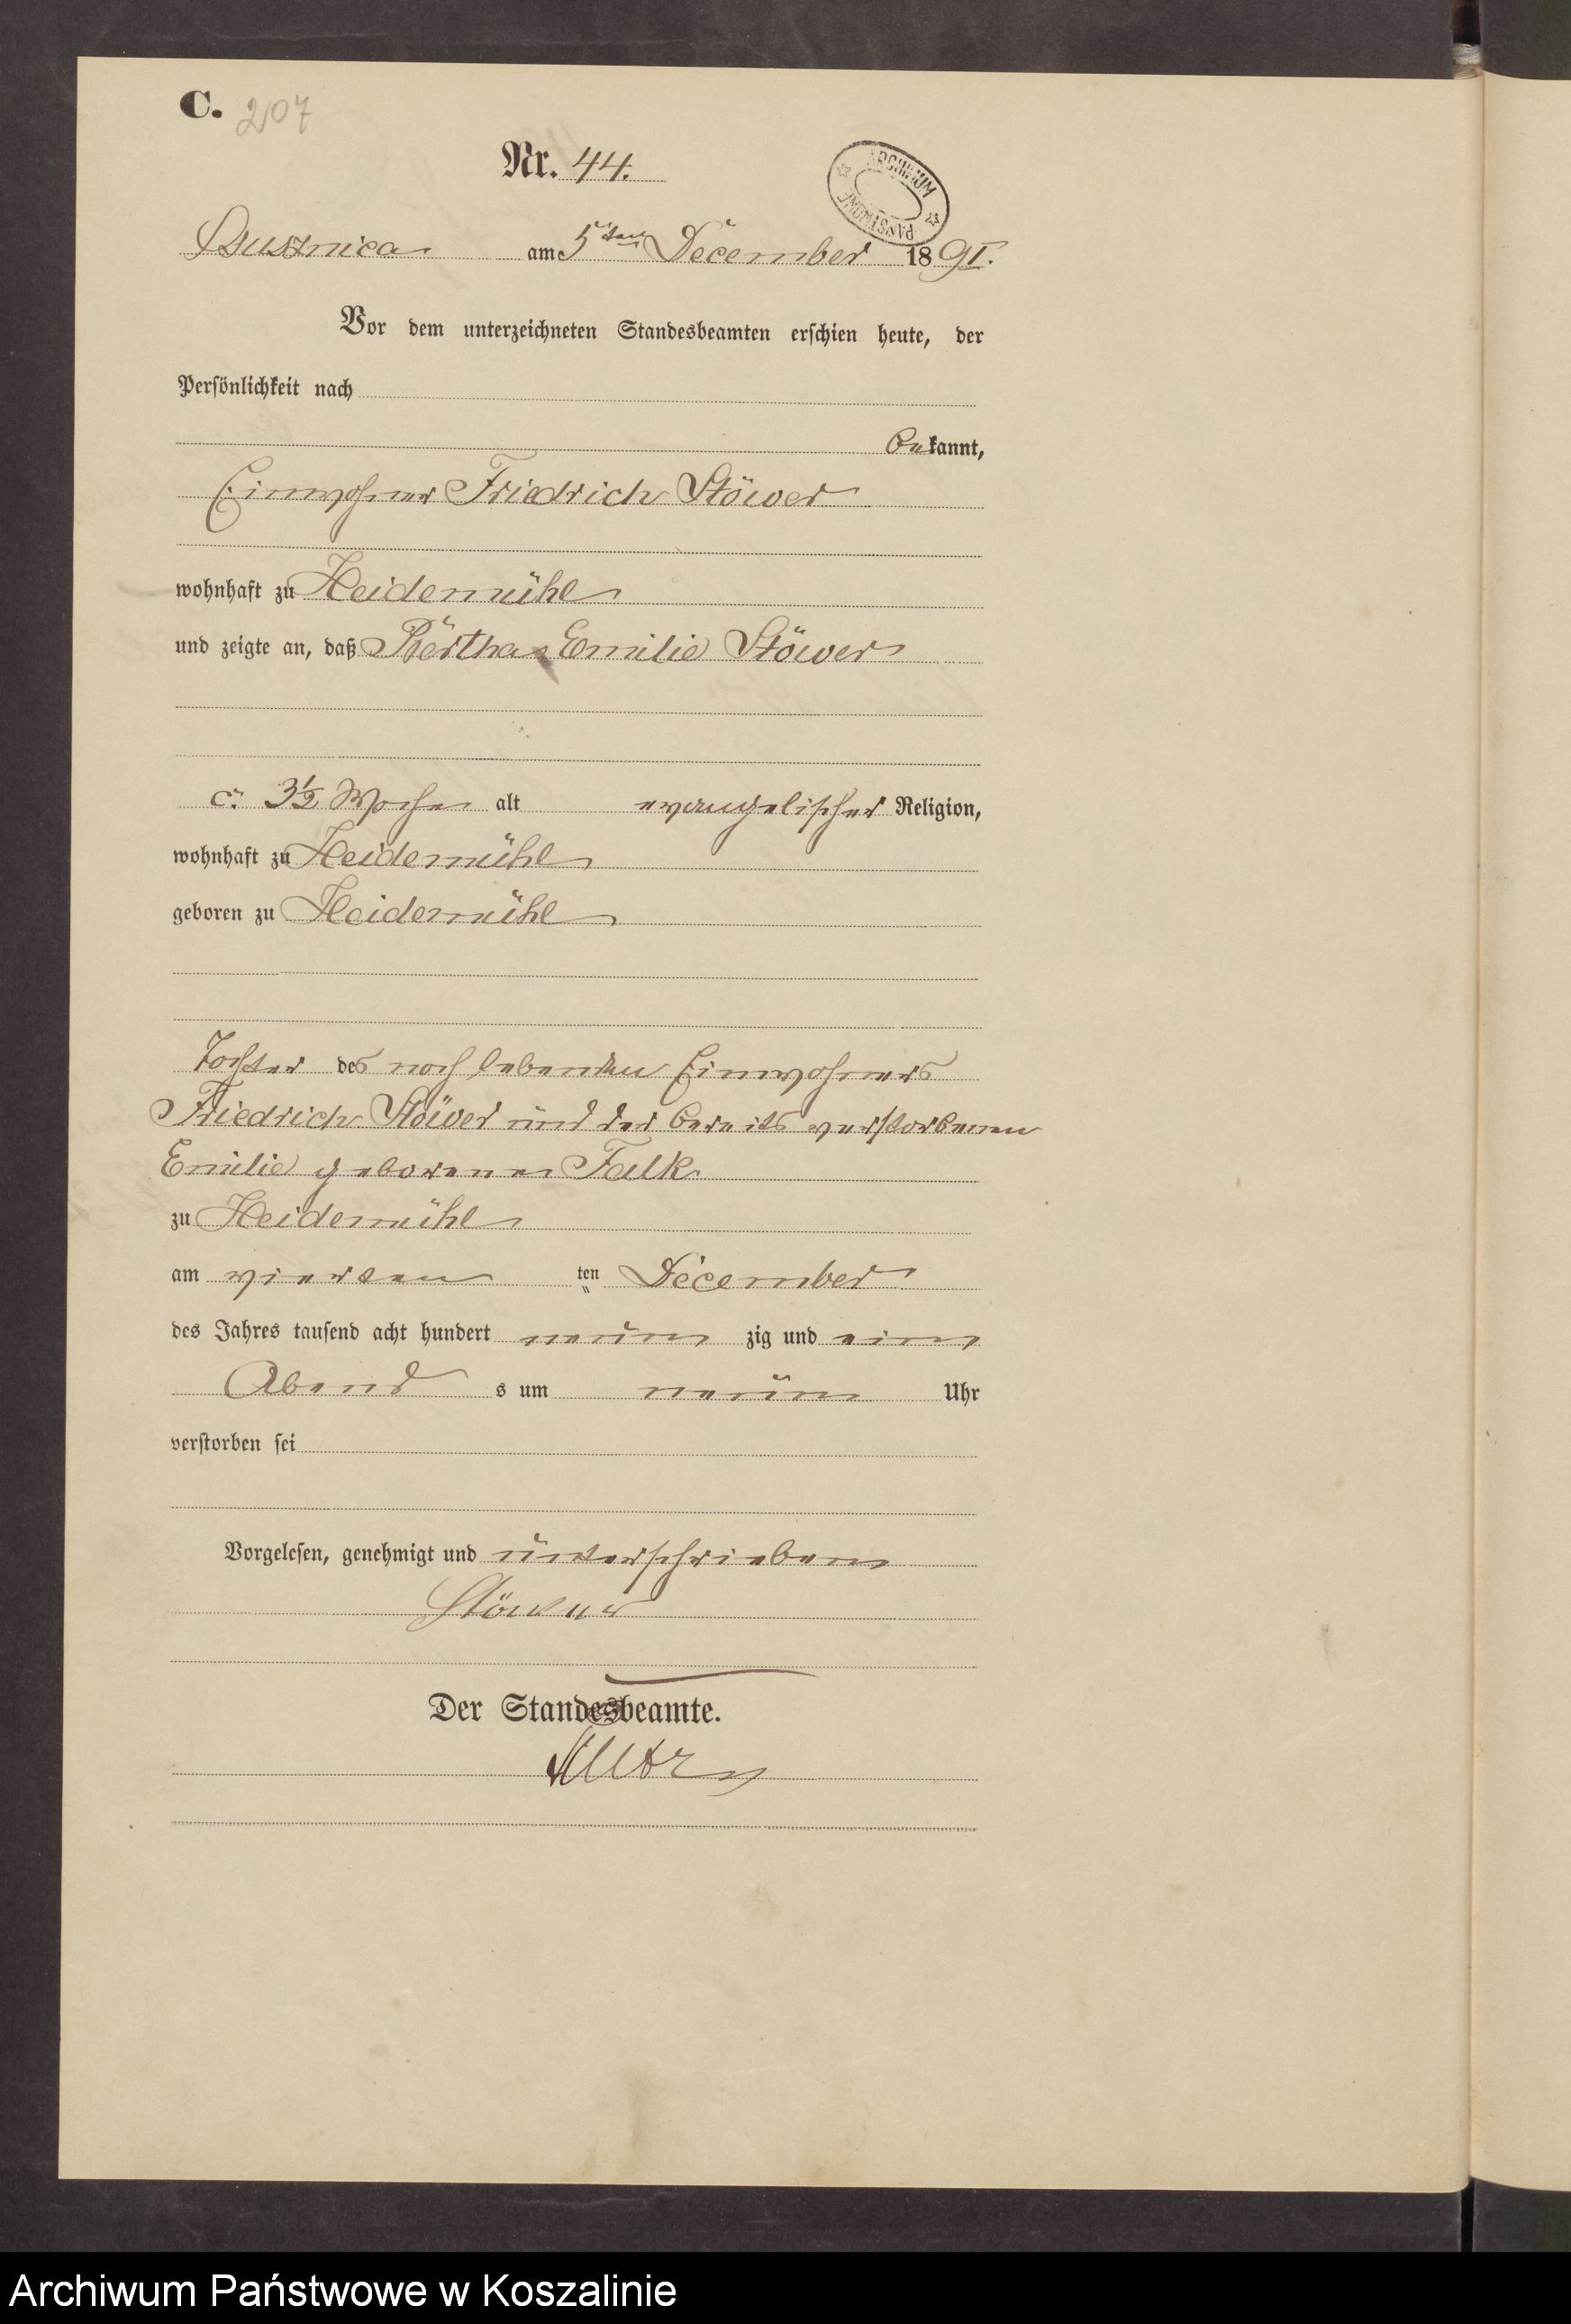 C. 207
Nr. 44.
ARCHIWUM PAŃSTWOWE
am 5ten December 1891.
Vor dem unterzeichneten Standesbeamten erschien heute, der
Persönlichkeit nach
bekannt,
Einwohner Friedrich Stöwer
wohnhaft zu Heidemühl
und zeigte an, daß Bertha Emilie Stöwer
c. 3½ Woche alt evangelischer Religion,
wohnhaft zu Heidemühl
geboren zu Heidemühl
Tochter des noch lebenden Einwohners
Friedrich Stöwer und der bereits verstorbenen
Emilie geborenen Falk
zu Heidemühl
am vierten ten December
des Jahres tausend acht hundert neun zig und ein
Abend s um neun Uhr
verstorben sei
Vorgelesen, genehmigt und unterschrieben
Stöwer
Der Standesbeamte.
Archiwum Państwowe w Koszalinie